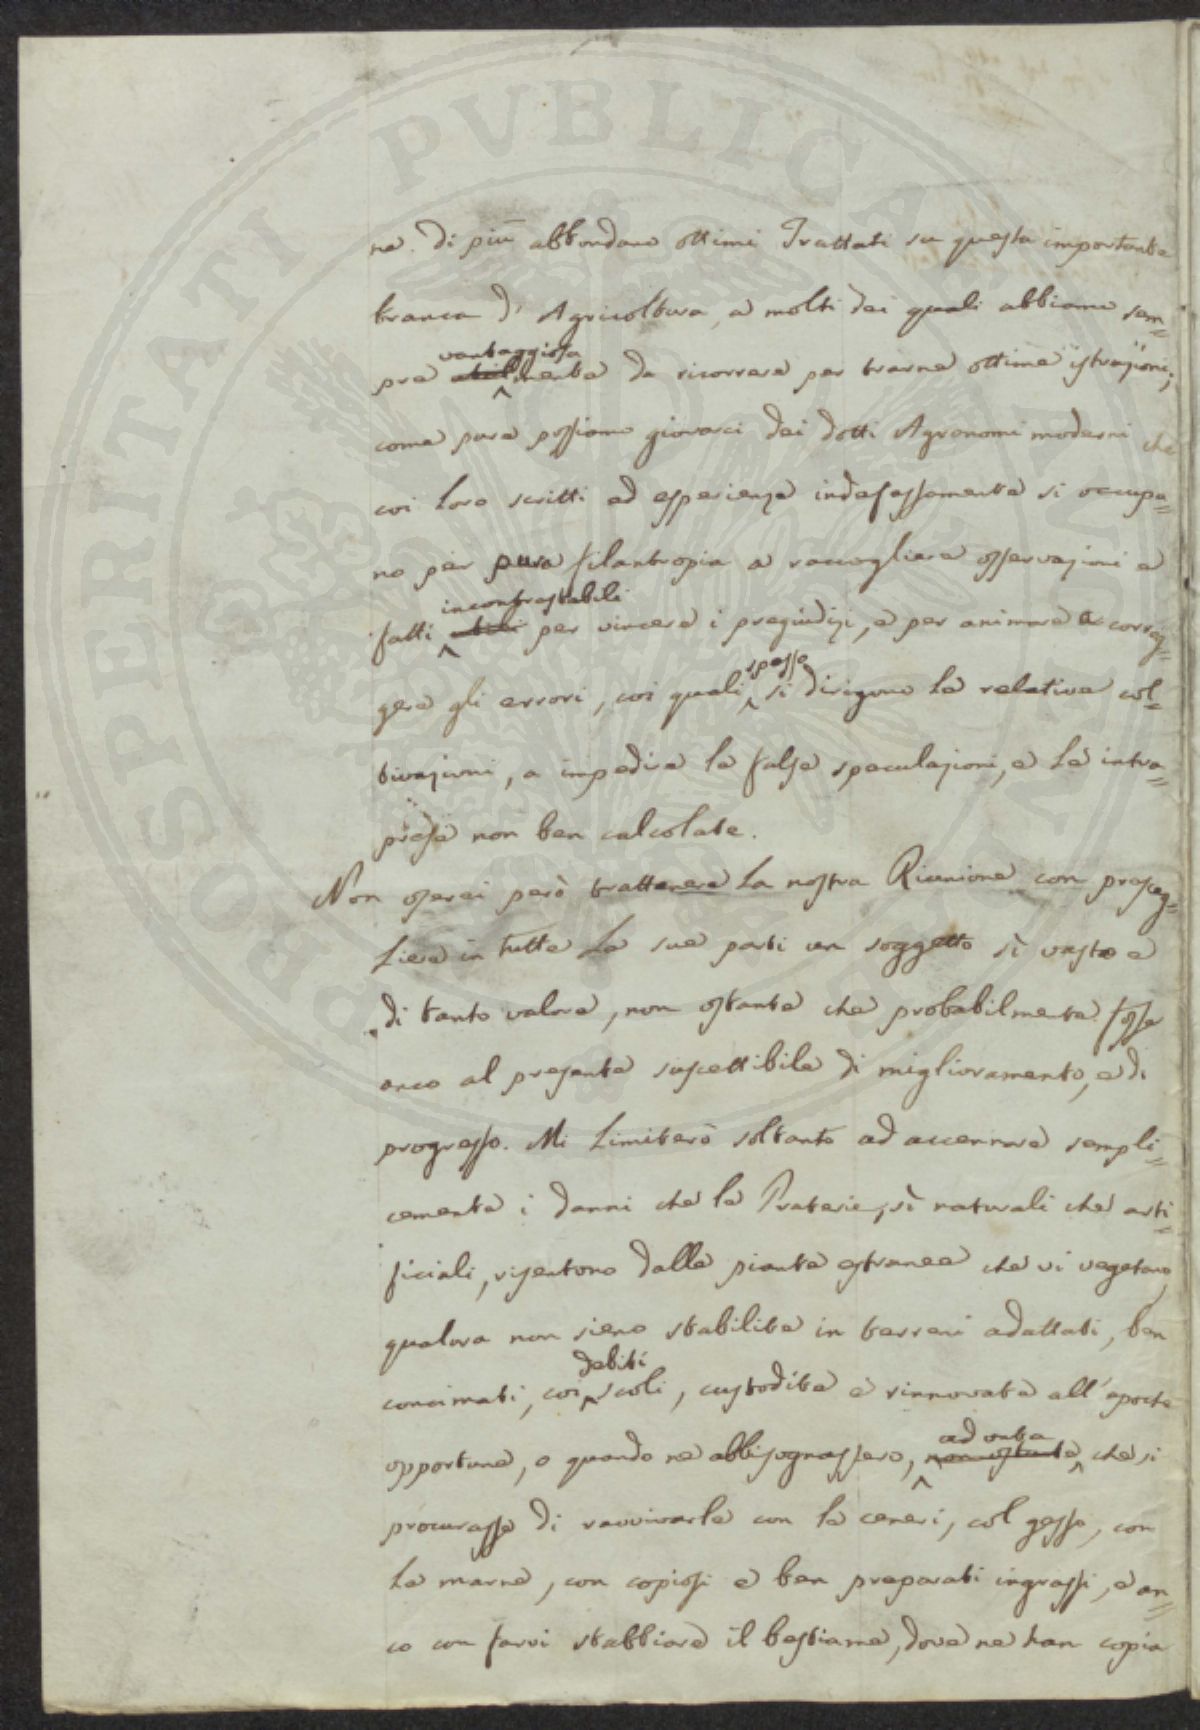 ne. Di più abbondano ottimi Trattati su questa importante
branca d'Agricoltura, a molti dei quali abbiamo sem=
pre vantaggiosamente da ricorrere per trarne ottime istruzioni;
come pure possiamo giovarci dei dotti Agronomi moderni che
coi loro scritti ed esperienze indefessamente si occupa=
no per pura filantropia a raccogliere osservazioni e
fatti incontrastabili per vincere i pregiudizi, e per animare a correg=
gere gli errori, coi quali spesso si dirigono le relative col=
tivazioni, a impedire le false speculazioni, e le intra=
prese non ben calcolate.
Non oserei però trattenere la nostra Riunione con presceg=
liere in tutte le sue parti un soggetto sì vasto e
di tanto valore, non ostante che probabilmente fosse
anco al presente suscettibile di miglioramento, e di
progresso. Mi limiterò soltanto ad accennare sempli=
cemente i danni che le Praterie, sì naturali che arti=
ficiali, risentono dalle piante estranee che vi vegetano,
qualora non sieno stabilite in terreni adattati, ben
concimati, coi debiti scoli, custodite e rinnovate all'epoche
opportune, o quando ne abbisognassero, ad onta che si
procurasse di ravvivarle con le ceneri, col gesso, con
le marne, con copiosi e ben preparati ingrassi, e an=
co con farvi stabbiare il bestiame, dove ne han copia
PROSPERITATI PVBLICAE AVGENDAE